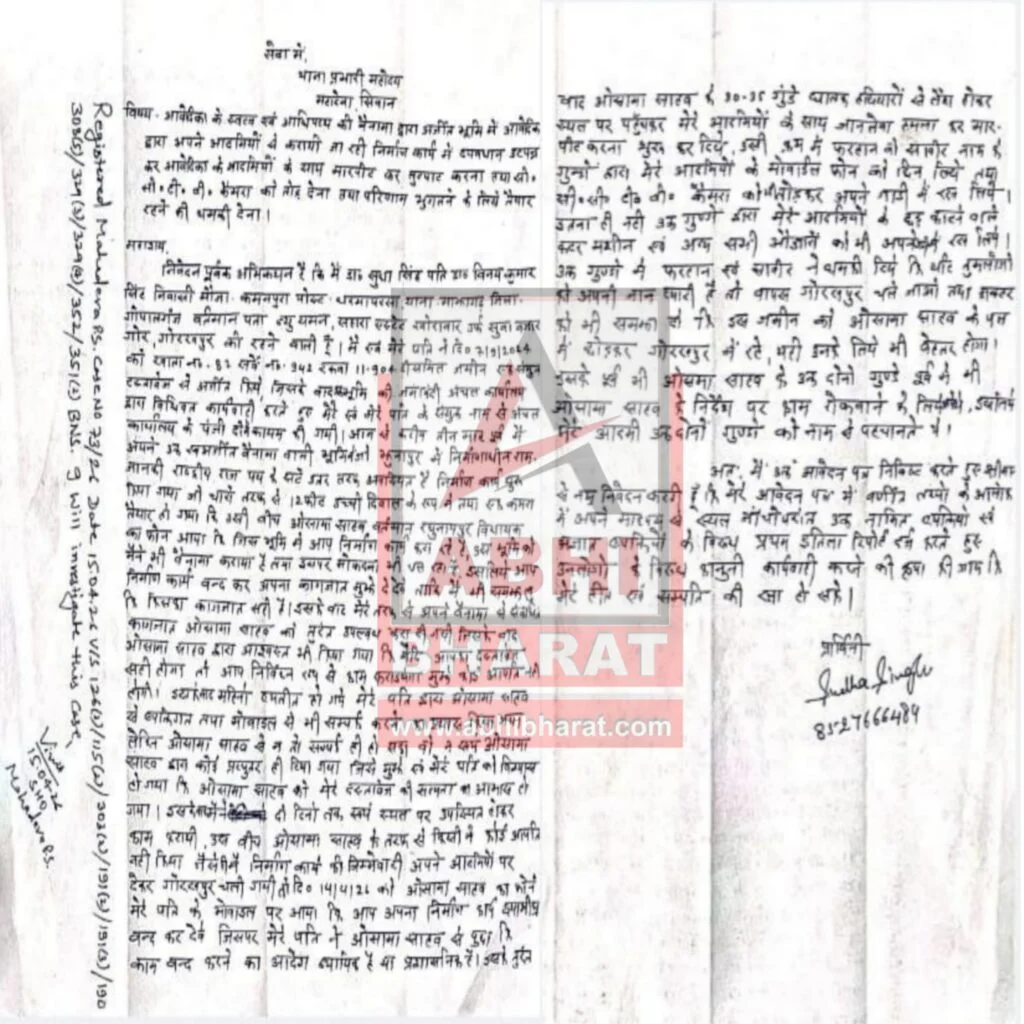 सेवा में,
थाना प्रभारी महोदय
महादेवा सिवान
विषय - आवेदिका के स्वत्व एवं आधिपत्य की बैनामा द्वारा अर्जीत भूमि में आवेदिका
द्वारा अपने आदमियों से करायी जा रही निर्माण कार्य में व्यवधान उत्पन्न
कर आवेदिका के आदमियों के साथ मारपीट कर लुटपाट करना तथा सी०
सी० टी० वी० कैमरा को तोड़ देना तथा परिणाम भुगतने के लिये तैयार
रहने की धमकी देना।
महाशय,
निवेदन पूर्वक अभिकथन है कि मैं डा० सुधा सिंह पति डा० विनय कुमार
सिंह निवासी मौजा- कमनपुरा पोस्ट- धरमापरसा थाना माझागढ़ जिला-
गोपालगंज वर्तमान पता सहारा एस्टेट खोराबार उर्फ सुबा बाजार
गोरखपुर की रहने वाली हूँ। मैं एवं मेरे पति ने दि०
को खाता नं०- 82 सर्वे नं० 242 रकवा 11-906 जमीन एक संयुक्त
दस्तावेज से अर्जीत किये, जिसके बाद भूमि की जमाबंदी अंचल कार्यालय
द्वारा विधिवत कार्यवाही करते हुए मेरे एवं मेरे पति के संयुक्त नाम से अंचल
कार्यालय के पंजी दो में कायम की गयी। आज से करीब तीन माह पूर्व में
अपने उक्त बैनामा वाली भूमि में निर्माणाधीन राम
जानकी राष्ट्रीय राज पथ के सटे उत्तर तरफ अवस्थित है निर्माण कार्य शुरू
किया गया जो चारो तरफ से 12 फीट उच्ची दिवाल के रूप में तथा एक कमरा
तैयार हो गया कि उसी बीच ओसामा साहब वर्तमान रघुनाथपुर विधायक
का फोन आया कि जिस भूमि में आप निर्माण कार्य करा रहे हैं उस भूमि को
मैंने भी बैनामा कराया है तथा उसपर मोकदमा भी चल रहा है इसलिये आप
निर्माण कार्य बन्द कर अपना कागजात मुझे दे देवे ताकि मैं भी समझ लू
कि किसका कागजात सही है। इसके बाद मेरे तरफ से अपने बैनामा से संबंधित
कागजात ओसामा साहब को तुरंत उपलब्ध करा दी गयी जिसके बाद
ओसामा साहब द्वारा आश्वस्त भी किया गया कि यदि आपका दस्तावेज
सही होगा तो आप निश्चित रूप से काम कराइयेगा मुझे कोई आपत्ति नही
होगी। इसप्रकार महिनो व्यतीत हो गये मेरे पति द्वारा ओसामा साहब
से व्यक्तिगत तथा मोबाईल से भी सम्पर्क करने का प्रयास किया गया
लेकिन ओसामा साहब से न तो सम्पर्क ही हो सका और न स्वयं ओसामा
साहब द्वारा कोई प्रत्युत्तर ही दिया गया जिससे मुझे एवं मेरे पति को विश्वास
हो गया कि ओसामा साहब को मेरे दस्तावेज की सत्यता का आभाष हो
गया। इसके बाद मैंने दो दिनो तक स्वयं स्थल पर उपस्थित होकर
काम करायी, उस बीच ओसामा साहब के तरफ से किसी ने कोई आपत्ति
नही किया मैं निर्माण कार्य की जिम्मेवारी अपने आदमियों पर
देकर गोरखपुर चली गयी दि० 14/4/26 को ओसामा साहब का फोन
मेरे पति के मोबाईल पर आया कि आप अपना निर्माण कार्य
बन्द कर देवे जिसपर मेरे पति ने ओसामा साहब से पूछा कि
काम बन्द करने का आदेश न्यायिक है या प्रशासनिक है। इसके तुरंत
बाद ओसामा साहब के 30-35 गुंडे घातक हथियारों से लैस होकर
स्थल पर पहुँचकर मेरे आदमियों के साथ जानलेवा हमला कर मार-
पीट करना शुरू कर दिये, उसी क्रम में फरहान और साबीर नाम के
गुन्डो द्वारा मेरे आदमियों के मोबाईल फोन को छिन लिये तथा
सी० सी० टी० वी० कैमरा को भी तोड़कर अपने गाड़ी में रख लिये।
इतना ही नही उक्त गुण्डो द्वारा मेरे आदमियों के छड़ काटने वाले
कटर मशीन एवं अन्य सभी औजारों को भी अपने में रख लिये।
उक्त गुण्डो में फरहान एवं साबीर ने धमकी दिये कि यदि तुमलोगो
को अपनी जान प्यारी है तो वापस गोरखपुर चले जाओ तथा डाक्टर
को भी समझा दो कि इस जमीन को ओसामा साहब के पक्ष
में छोड़कर गोरखपुर में रहे, यही उनके लिये भी बेहतर होगा।
इसके पूर्व भी ओसामा साहब के उक्त दोनो गुण्डे पूर्व में भी
ओसामा साहब के निर्देश पर काम रोकवाने के लिये आये थे, इसलिये
मेरे आदमी उक्त दोनो गुण्डो को नाम से पहचानते थे।
अतः मैं उक्त आवेदन पत्र निविष्ट करते हुए श्रीमान
से नम्र निवेदन करती हूँ कि मेरे आवेदन पत्र में वर्णीत तथ्यो के आलोक
में अपने माध्यम से स्थल जाँचोपरांत उक्त नामित व्यक्तियों एवं
अज्ञात व्यक्तियों के विरूद्ध प्रथम इतिला रिपोर्ट दर्ज करते हुए
उनलोगो के विरूद्ध कानूनी कार्यवाही करने की कृपा की जाय कि
मेरे हीत एवं सम्पति की रक्षा हो सके।
प्रार्थिनी
Sudha Singh
8527666484
Registered Mahadeva P.S. Case No 73/26 Date 15.04.26 U/S. 126(2)/115(2)/303(2)/191(2)/191(3)/190
308(5)/324(3)/329(4)/352/351(2) BNS. I will investigate this case,
15.04.26
SHO
Mahadeva P.S.
ABHI
BHARAT
www.abhibharat.com